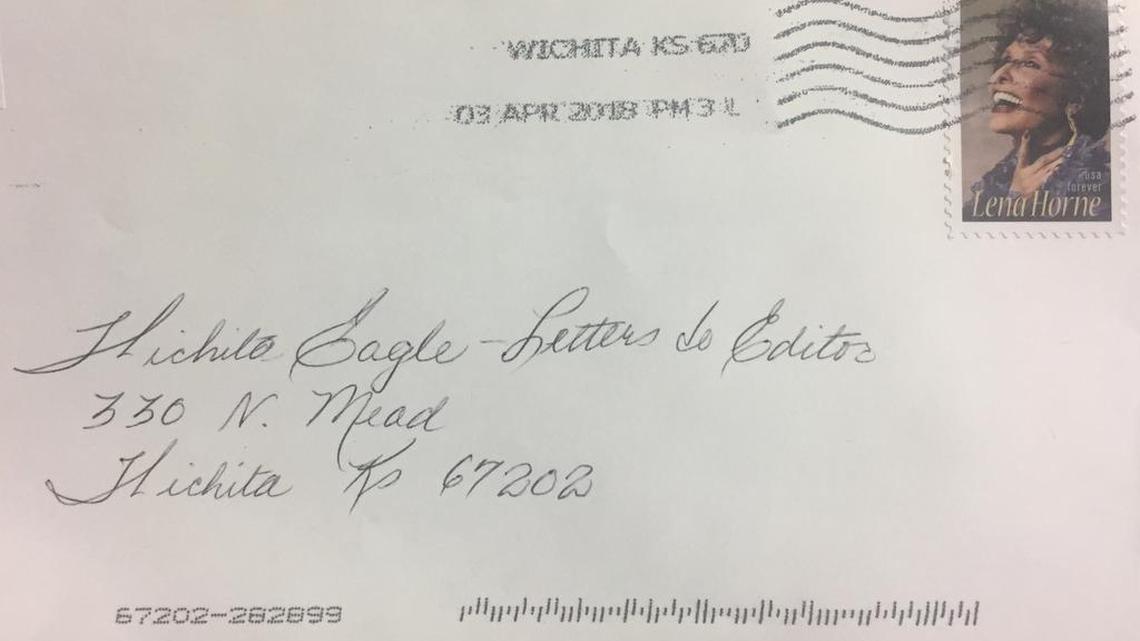 WICHITA KS 670
03 APR 2018 PM 3 L
usa
forever
Lena Horne
Wichita Eagle - Letters to Editor
330 N. Mead
Wichita Ks 67202
67202-282899